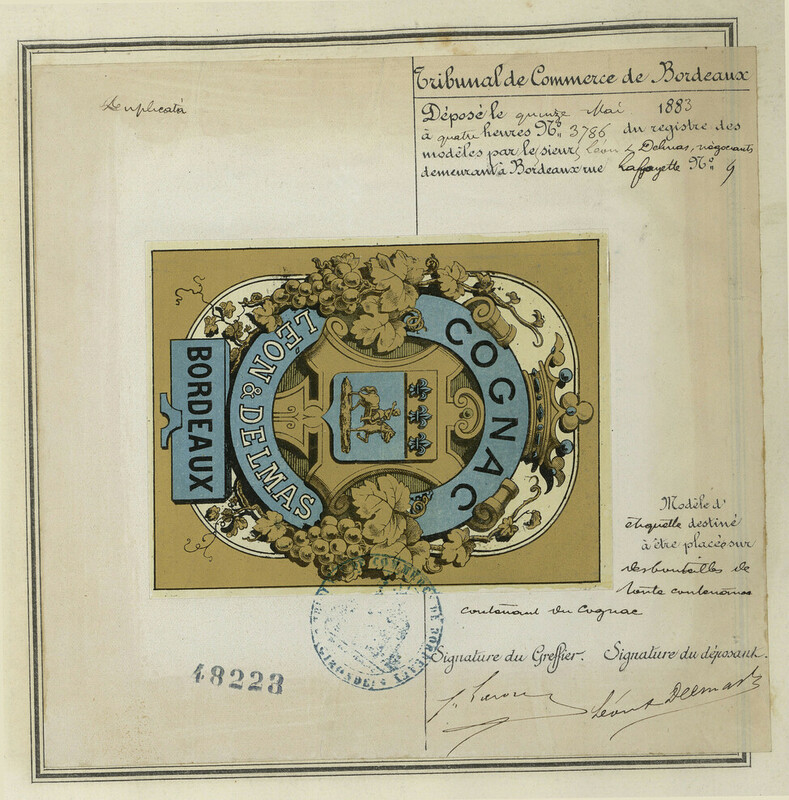 Duplicata
Tribunal de Commerce de Bordeaux
Déposé le quinze Mai 1883
à quatre heures No. 3786 du registre des
modèles par le sieur Léon & Delmas, négociants
demeurant à Bordeaux rue Laffayette No. 9
COGNAC
LÉON & DELMAS
BORDEAUX
Modèle d'
étiquette destiné
à être placés sur
des bouteilles de
toute contenance
contenant du Cognac
TRIBUNAL DE COMMERCE DE BORDEAUX
(GIRONDE)
Signature du Greffier. Signature du déposant.
48223
Léon & Delmas